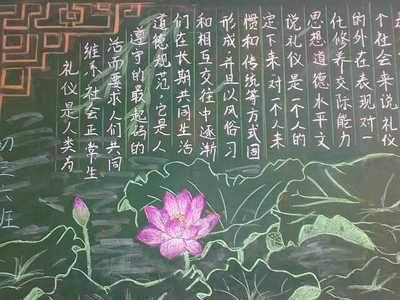 礼仪是人类为
维系社会正常生
活而要求人们共同
遵守的最起码的
道德规范,它是人
们在长期共同生活
和相互交往中逐渐
形成并且以风俗习
惯和传统等方式固
定下来对一个人来
说礼仪是一个人的
思想道德水平文
化修养交际能力
的外在表现对一
个社会来说礼仪
初 六班